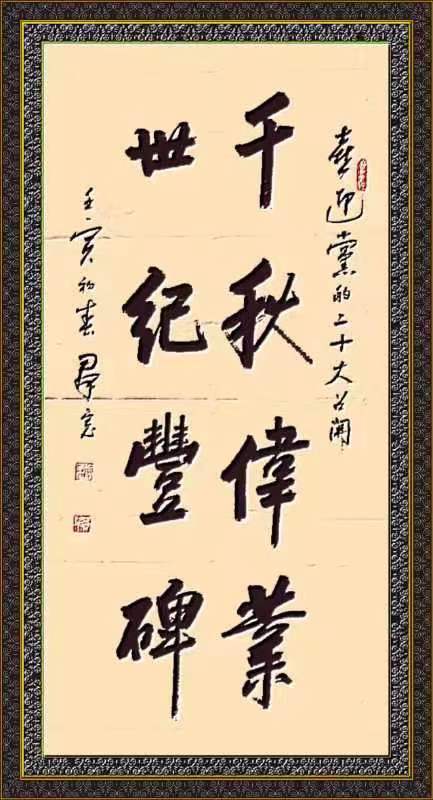 喜迎黨的二十大召開
千秋偉業
世紀豐碑
壬寅初春